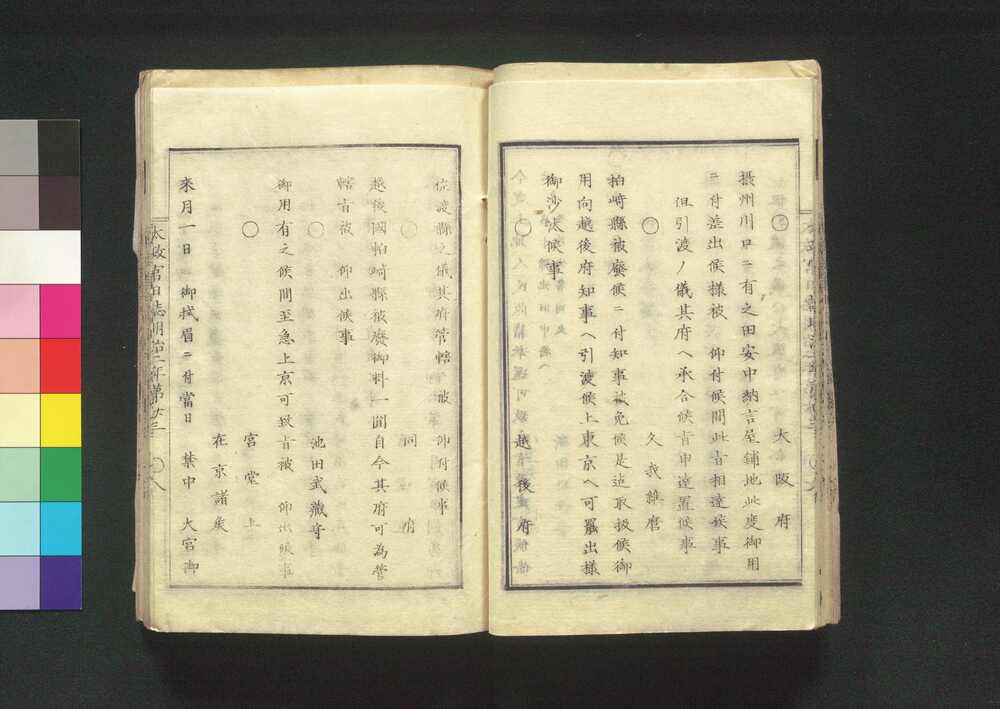 ○ 大阪府
攝州川口ニ有之田安中納言屋鋪地此度御用
ニ付差出候樣被 仰付候間此旨相達候事
但引渡ノ儀其府ヘ承合候旨申達置候事
○ 久我維麿
柏崎縣被廢候ニ付知事被免候是迄取扱候御
用向越後府知事ヘ引渡候上東京ヘ可罷出樣
御沙汰候事
○ 越後府
佐渡縣之儀其府管轄被 仰付候事
○ 同府
越後國柏崎縣被廢御料一圓自今其府可為管
轄旨被 仰出候事
○ 池田武藏守
御用有之候間至急上京可致旨被 仰出候事
○ 宮堂上
在京諸矦
來月一日 御拭眉ニ付當日 禁中 大宮御
太政官日誌明治二年第廿三 ○八